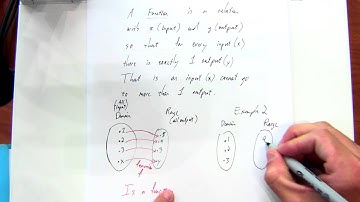 A Function is a relation
with x (input) and y (output)
so that for every input (x)
there is exactly 1 output (y)
That is an input (x) cannot go
to more than 1 output.
(All)
(input)
Domain
Range
(all output)
Example 2
Domain
Range
.1
.2
.3
.x
.1
.2
.3
2
Is a